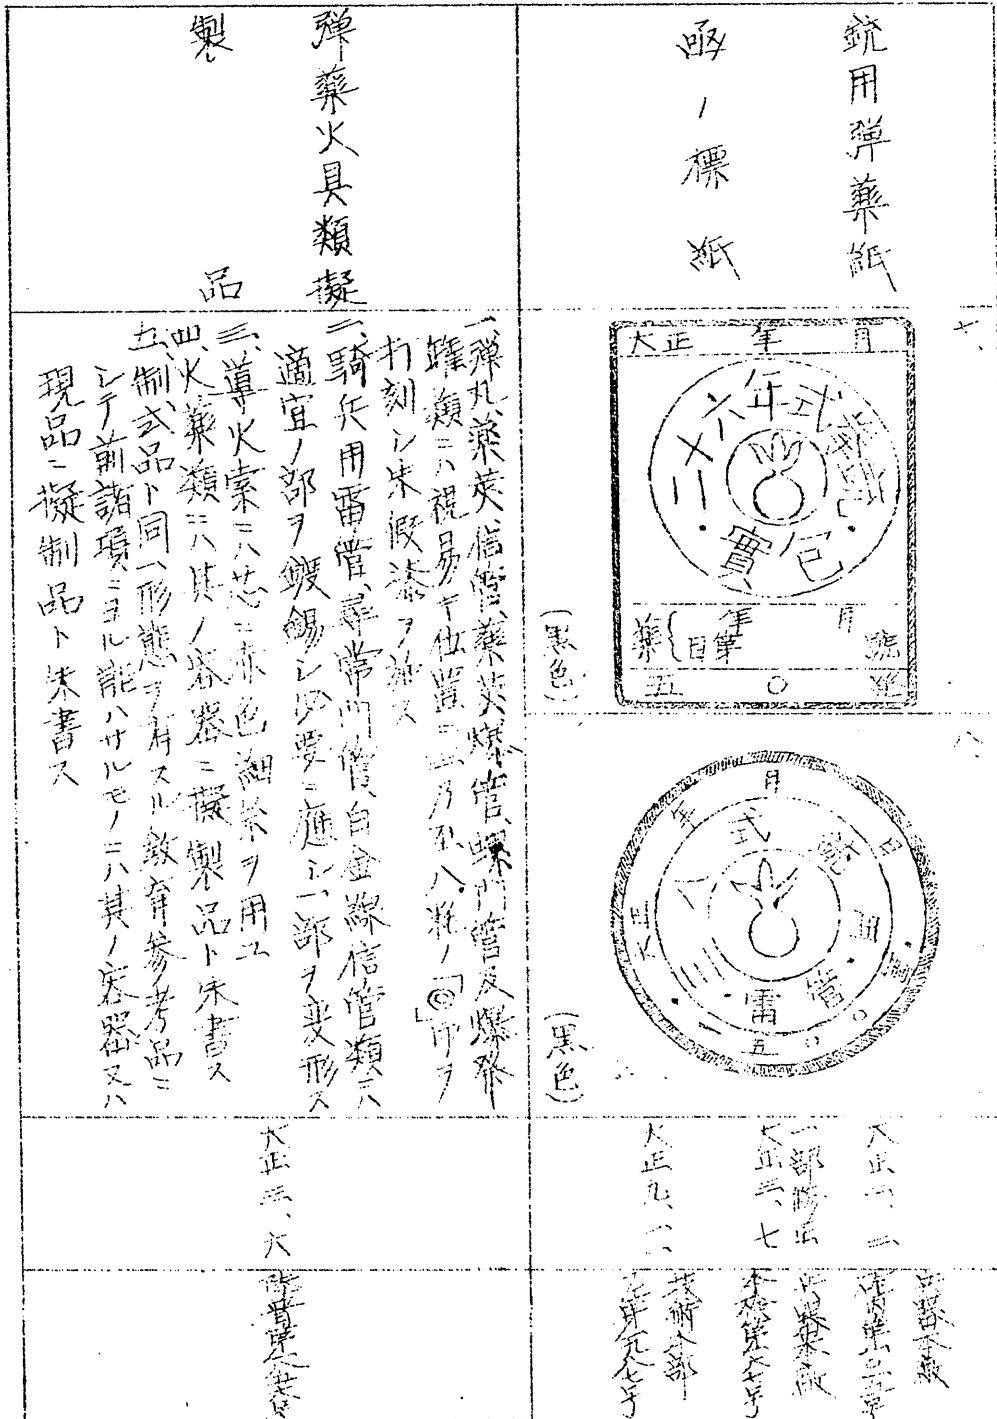 銃用弾薬紙
凾ノ標紙
七、
大正 年 月
二十六年式拳銃
實包
年 月
藥{日第 號
五〇 発
(黒色)
八、
大正 年 月 日
三八式銃
雷管
一五〇
(黒色)
大正一、二
一部修正
大正三、七
大正九、一、
兵器本廠
技術本部
弾藥火具類擬
製品
一、弾丸、藥莢、信管、藥莢爆管、螺門管及爆発
罐類ニハ視易キ位置ニ三乃至八粍ノ「◎」印ヲ
打刻シ朱假漆ヲ施ス
二、騎兵用雷管、尋常門管、白金線信管類ニハ
適宜ノ部ヲ鍍錫シ必要ニ應シ一部ヲ変形ス
三、導火索ニハ芯ニ赤色細糸ヲ用ユ
四、火藥類ニハ其ノ容器ニ擬製品ト朱書ス
五、制式品ト同一形態ヲ有スル教育参考品ニ
シテ前諸項ニヨル能ハサルモノニハ其ノ容器又ハ
現品ニ擬制品ト朱書ス
大正三、六